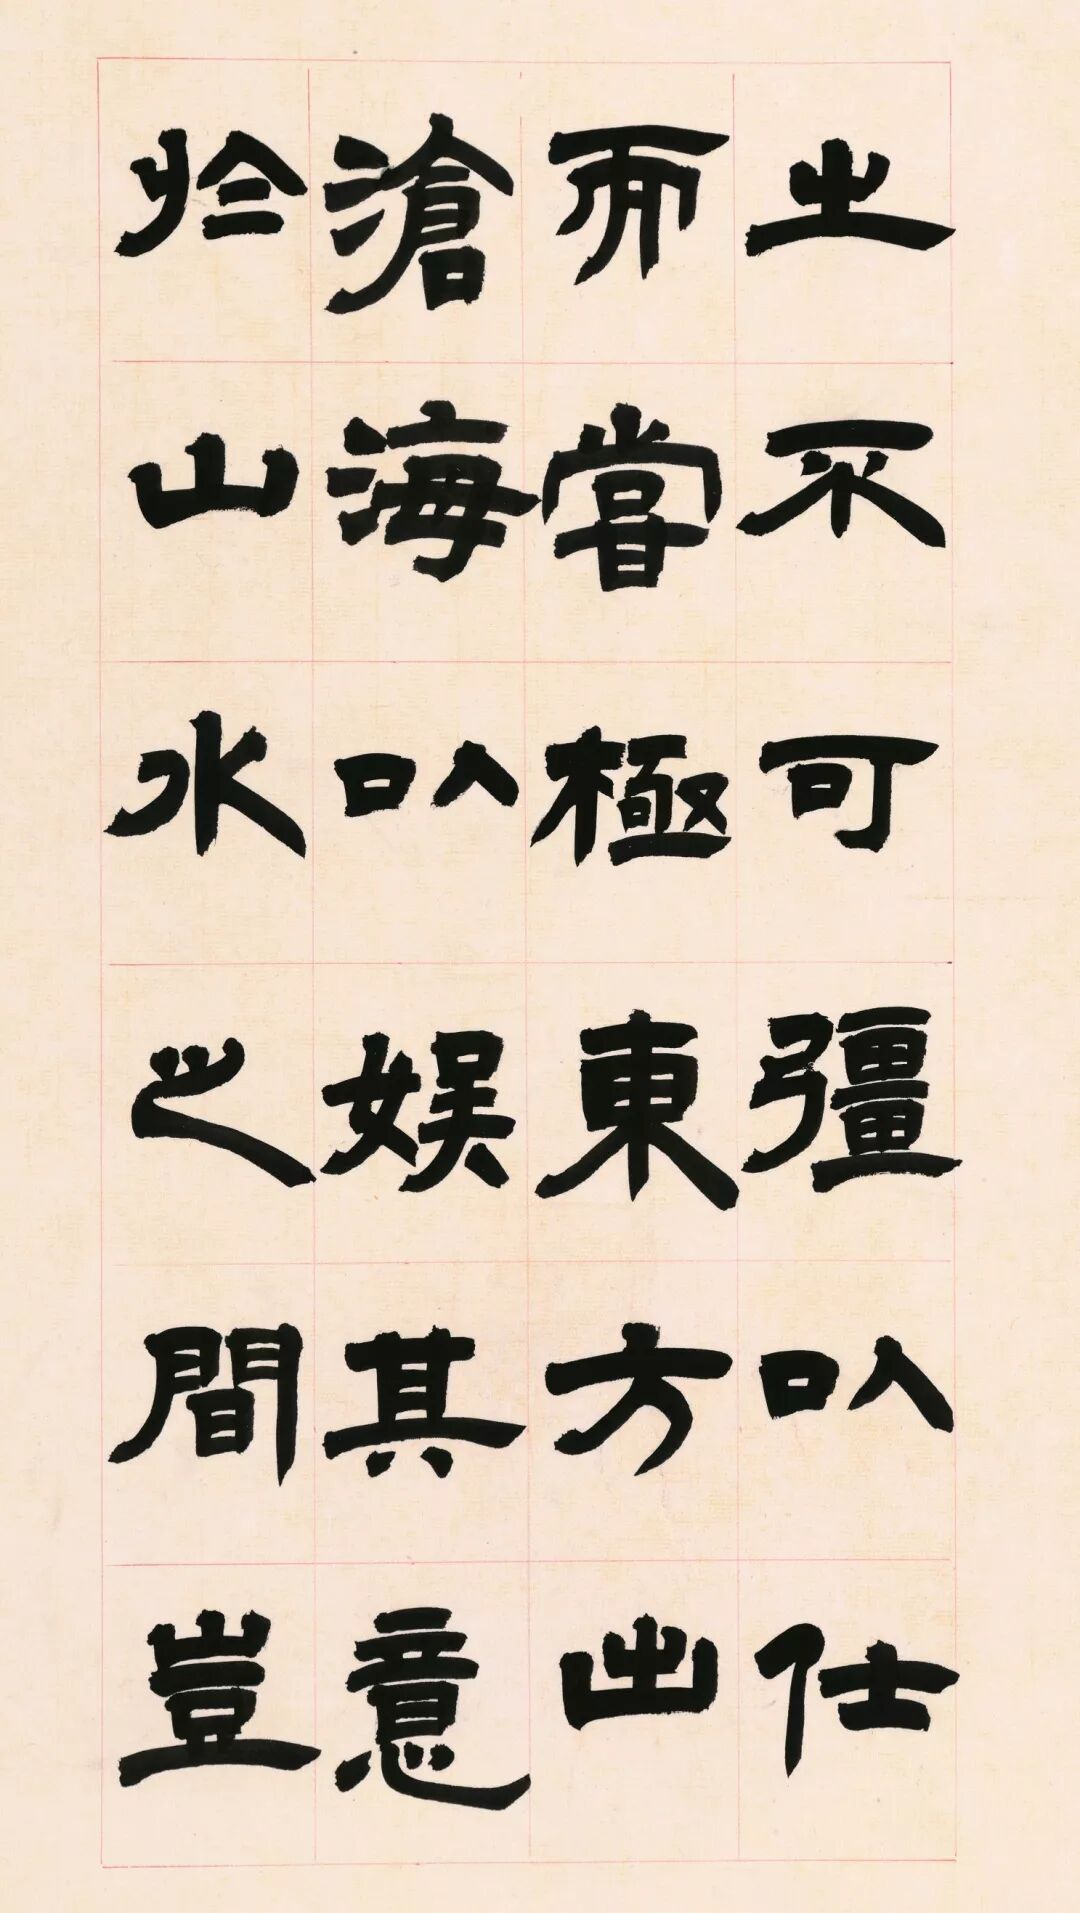 之不可彊以仕
而嘗極東方出
滄海以娛其意
於山水之間豈